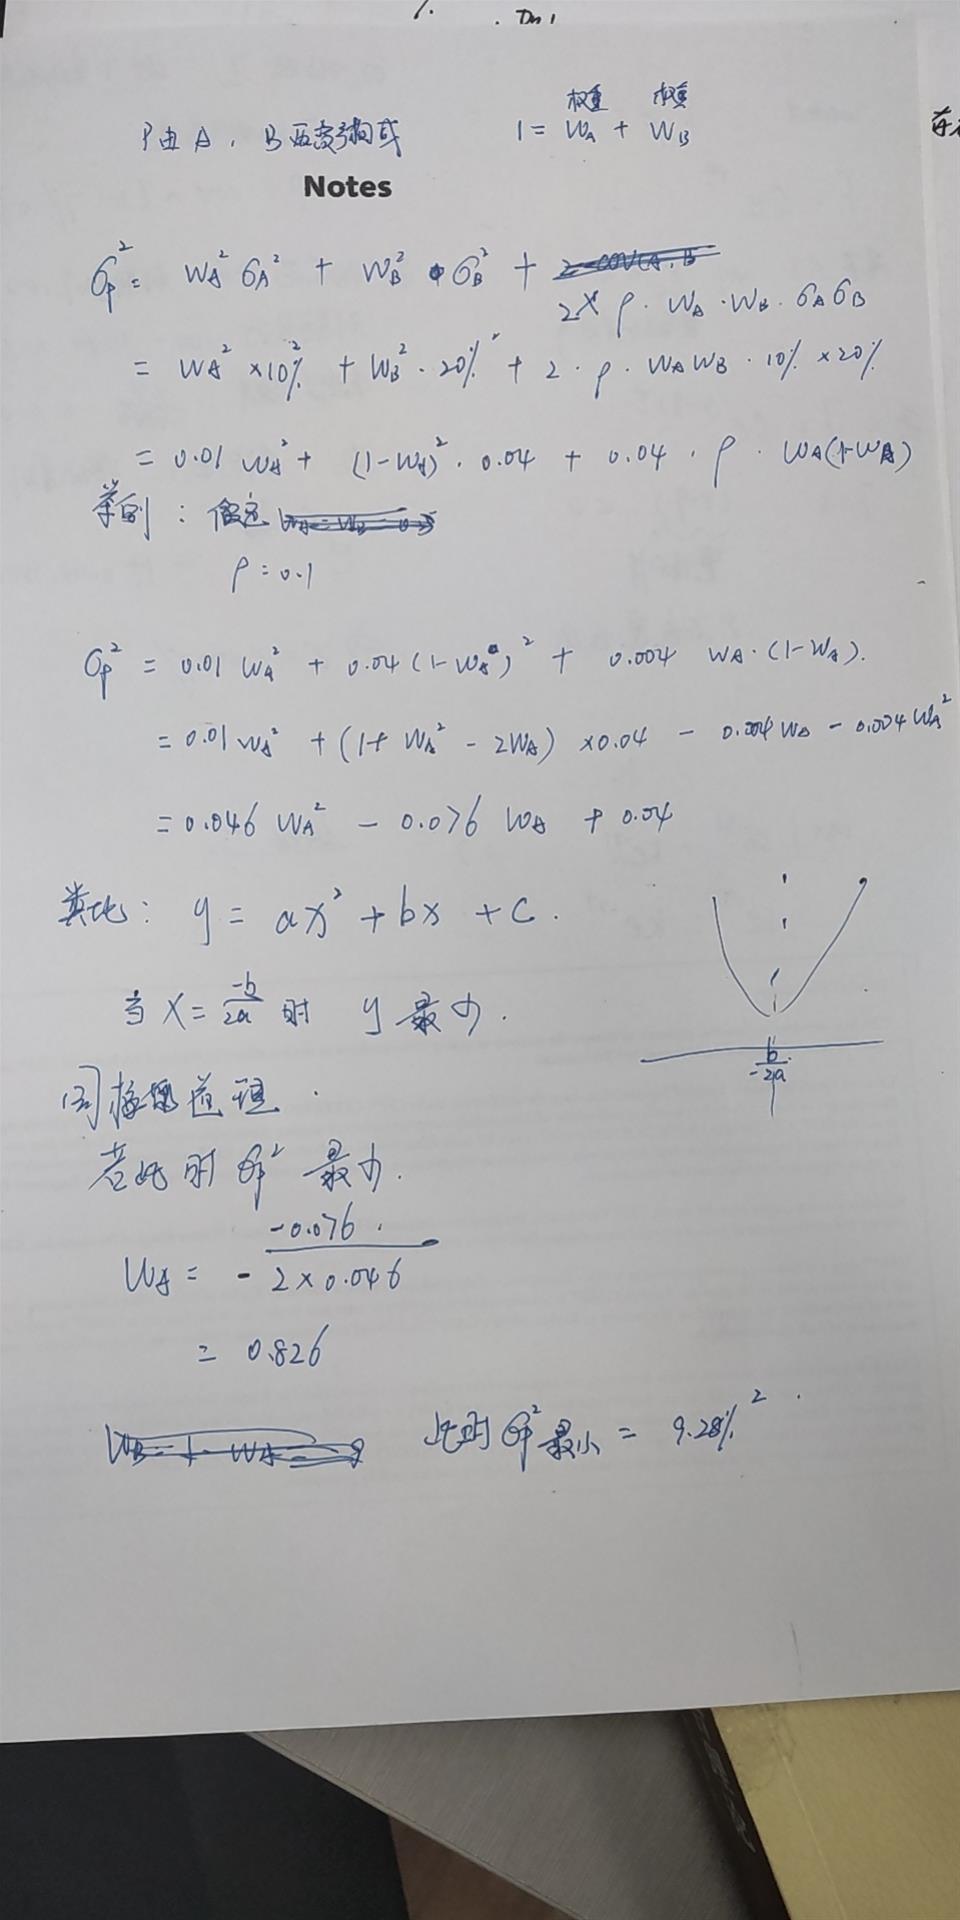 P由A，B两资产构成
权重 权重
1 = WA + WB
Notes
σp² = WA² σA² + WB² · σB² + 2 × ρ · WA · WB · σA σB
= WA² × 10%² + WB² · 20%² + 2 · ρ · WA WB · 10% × 20%
= 0.01 WA² + (1-WA)² · 0.04 + 0.04 · ρ · WA(1-WA)
举例： 假定
ρ = 0.1
σp² = 0.01 WA² + 0.04 (1-WA)² + 0.004 WA · (1-WA).
= 0.01 WA² + (1+ WA² - 2WA) × 0.04 - 0.004 WA - 0.004 WA²
= 0.046 WA² - 0.076 WA + 0.04
类比： y = ax² + bx + c .
当 x = -b/2a 时 y 最小 .
b/-2a
同样道理 .
若此时 σp² 最小 .
WA = - -0.076 / 2 × 0.046
= 0.826
此时 σp² 最小 = 9.28%² .